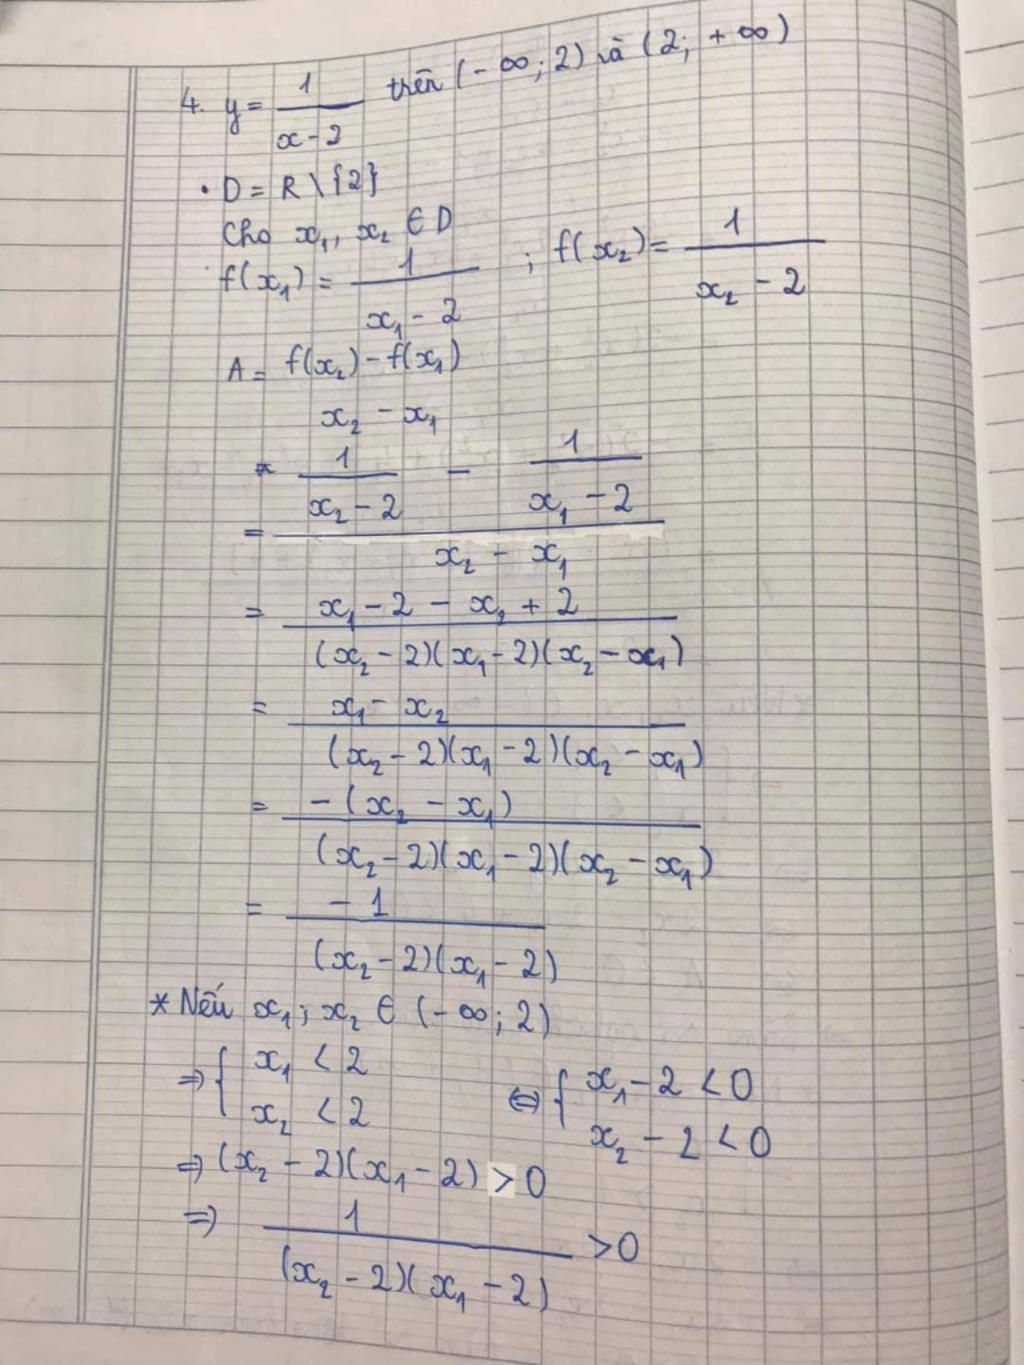 4. y = 1 / (x - 2) trên (- ∞; 2) và (2; + ∞)
• D = R \ {2}
Cho x₁, x₂ ∈ D
f(x₁) = 1 / (x₁ - 2) ; f(x₂) = 1 / (x₂ - 2)
A = (f(x₂) - f(x₁)) / (x₂ - x₁)
= (1 / (x₂ - 2) - 1 / (x₁ - 2)) / (x₂ - x₁)
= (x₁ - 2 - x₂ + 2) / ((x₂ - 2)(x₁ - 2)(x₂ - x₁))
= (x₁ - x₂) / ((x₂ - 2)(x₁ - 2)(x₂ - x₁))
= -(x₂ - x₁) / ((x₂ - 2)(x₁ - 2)(x₂ - x₁))
= -1 / ((x₂ - 2)(x₁ - 2))
* Nếu x₁; x₂ ∈ (- ∞; 2)
⇒ { x₁ < 2 ⇔ { x₁ - 2 < 0
x₂ < 2 x₂ - 2 < 0
⇒ (x₂ - 2)(x₁ - 2) > 0
⇒ 1 / ((x₂ - 2)(x₁ - 2)) > 0